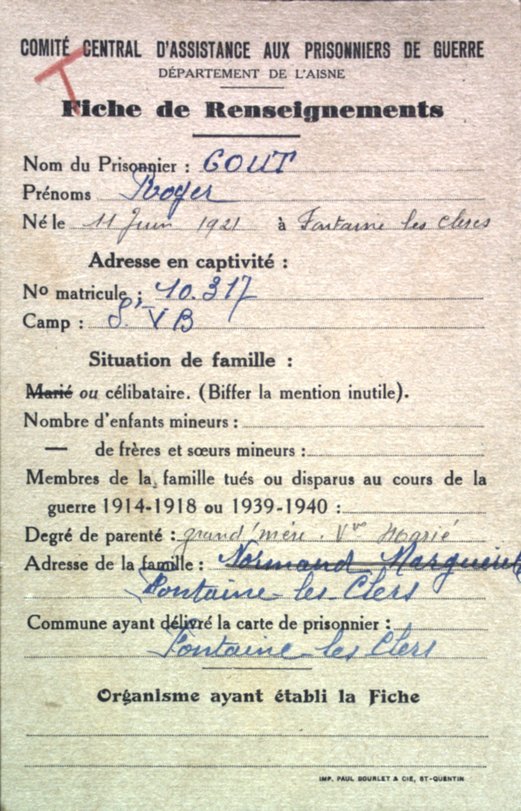 COMITÉ CENTRAL D'ASSISTANCE AUX PRISONNIERS DE GUERRE
DÉPARTEMENT DE L'AISNE
T
Fiche de Renseignements
Nom du Prisonnier : GOUT
Prénoms Roger
Né le 11 Juin 1921 à Fontaine les Clercs
Adresse en captivité :
No matricule : 40.317
Camp : S. VB
Situation de famille :
Marié ou célibataire. (Biffer la mention inutile).
Nombre d'enfants mineurs :
— de frères et sœurs mineurs :
Membres de la famille tués ou disparus au cours de la
guerre 1914-1918 ou 1939-1940 :
Degré de parenté : grand'mère. Vve
Adresse de la famille : Normand
Fontaine-les-Clers
Commune ayant délivré la carte de prisonnier :
Fontaine-les Clers
Organisme ayant établi la Fiche
IMP. PAUL BOURLET & CIE, ST-QUENTIN